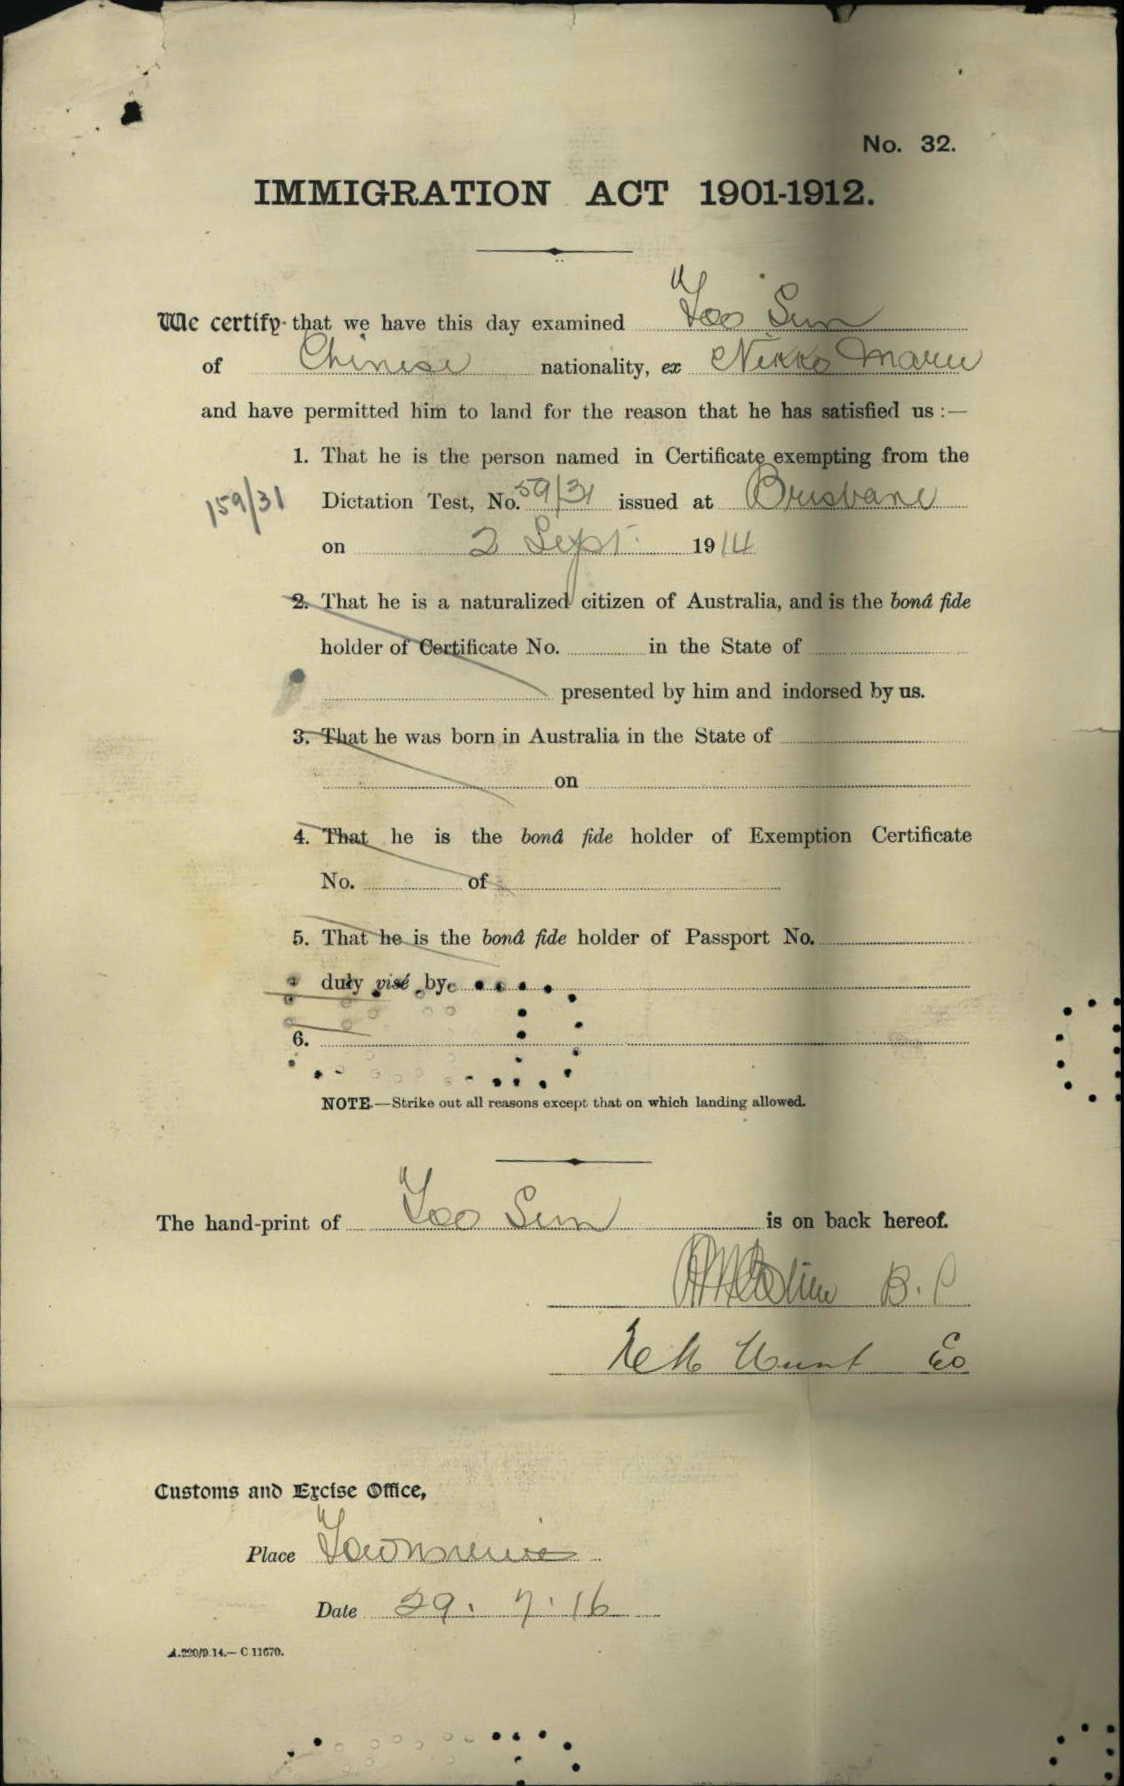 No. 32.
IMMIGRATION ACT 1901-1912.
We certify that we have this day examined Yoo Sun
of Chinese nationality, ex Nikko Maru
and have permitted him to land for the reason that he has satisfied us :—
1. That he is the person named in Certificate exempting from the
159/31 Dictation Test, No. 59/31 issued at Brisbane
on 2 Sept. 1914
2. That he is a naturalized citizen of Australia, and is the bonâ fide
holder of Certificate No. in the State of
presented by him and indorsed by us.
3. That he was born in Australia in the State of
on
4. That he is the bonâ fide holder of Exemption Certificate
No. of
5. That he is the bonâ fide holder of Passport No.
duly visé by
6.
NOTE.—Strike out all reasons except that on which landing allowed.
The hand-print of Yoo Sun is on back hereof.
B. P
Hunt Eo
Customs and Excise Office,
Place Townsville
Date 29. 7. 16
A.220/9.14.— C 11670.